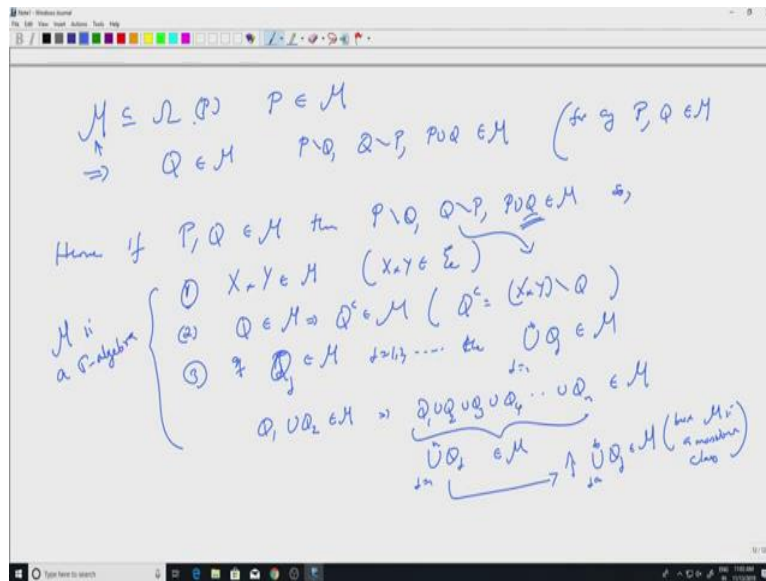 Note1 - Windows Journal
File Edit View Insert Actions Tools Help
M ⊆ Ω(P) P ∈ M
⇒ Q ∈ M P∖Q, Q∖P, P∪Q ∈ M (for any P, Q ∈ M
Hence if P, Q ∈ M then P∖Q, Q∖P, P∪Q ∈ M so,
M is a σ-algebra
(1) X×Y ∈ M (X×Y ∈ ξe)
(2) Q ∈ M ⇒ Q^c ∈ M (Q^c = (X×Y)∖Q)
(3) if Q_j ∈ M j=1,2 ..... the ∪ Q_j ∈ M
Q₁∪Q₂ ∈ M ⇒ Q₁∪Q₂∪Q₃∪Q₄ ... ∪Q_n ∈ M
∪Q_j ∈ M ↑ ∪ Q_j ∈ M ( M is a monotone class)
Type here to search
ENG 11:03 AM